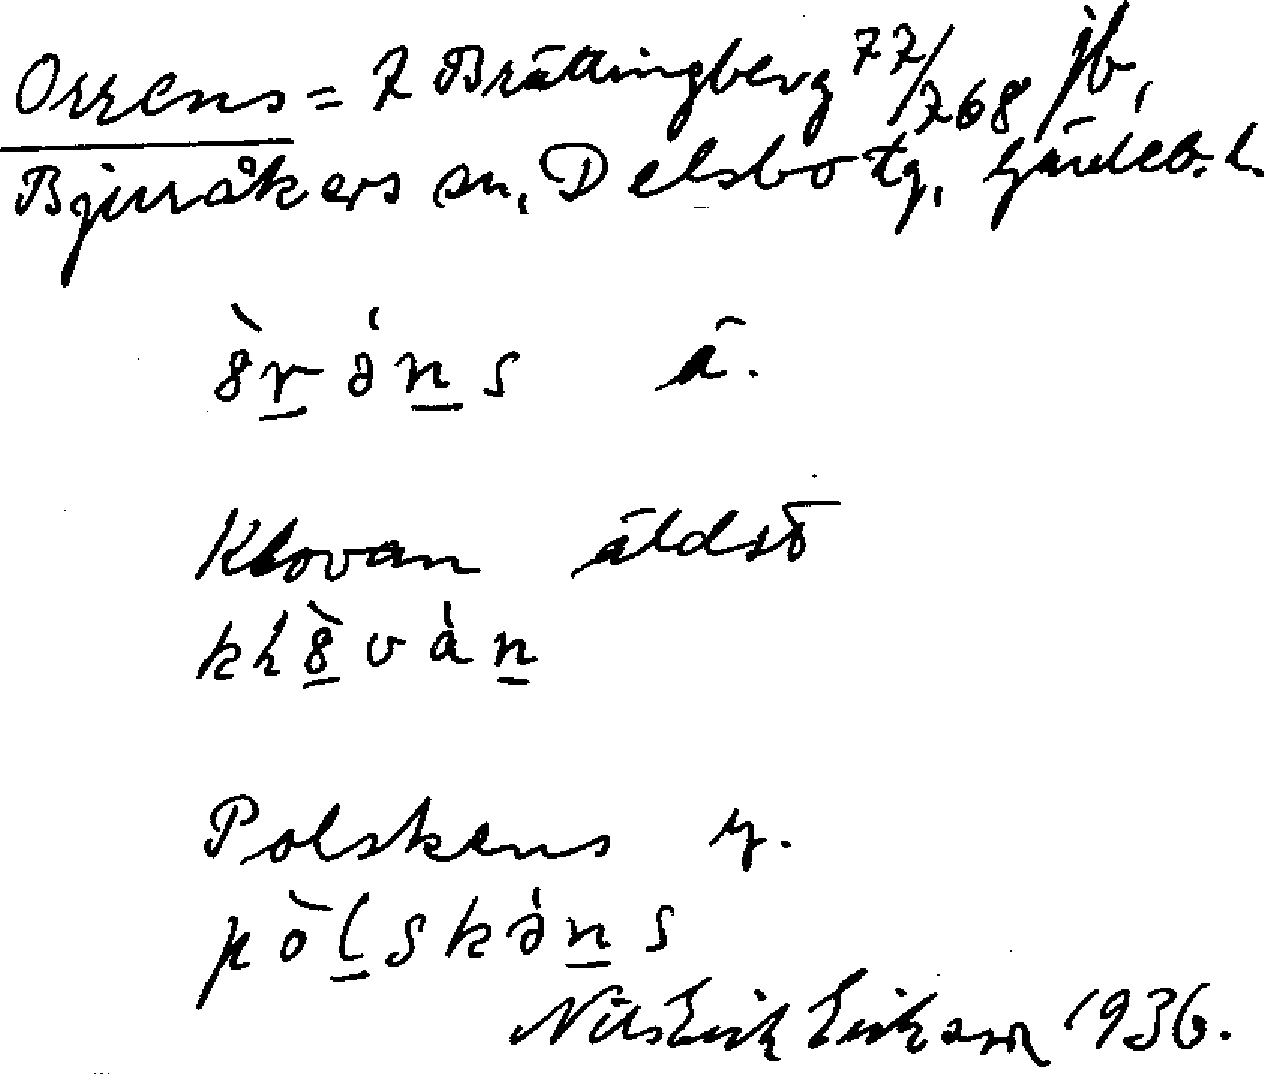 Orrens = 1 Brättingberg 77/768 jb,
Bjuråkers sn, Delsbo tg, Gävleb. l.
ȣ̀rə́ns ä.
Klovan äldst
klȣ̀ván
Polskens y.
pòlskəns
Nils Erik Eriksson 1936.